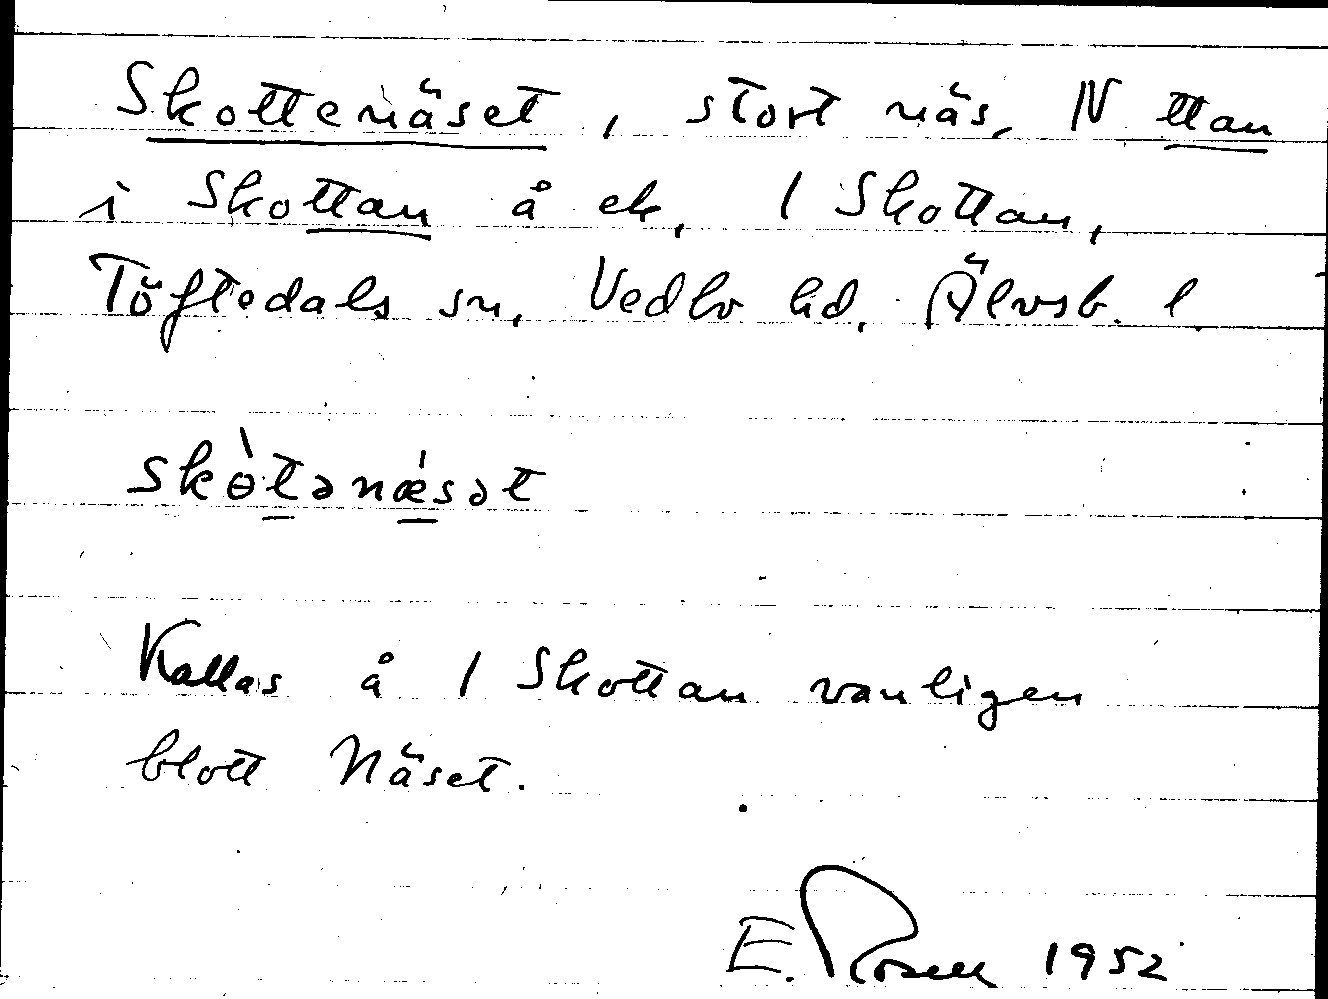 Skottenäset, stort näs, N ttan
i Skottan å ek. 1 Skottan,
Töftedals sn, Vedbo hd. Älvsb. l
skò̵tənǽsət
Kallas å 1 Skottan vanligen
blott Näset.
E. Rosell 1952